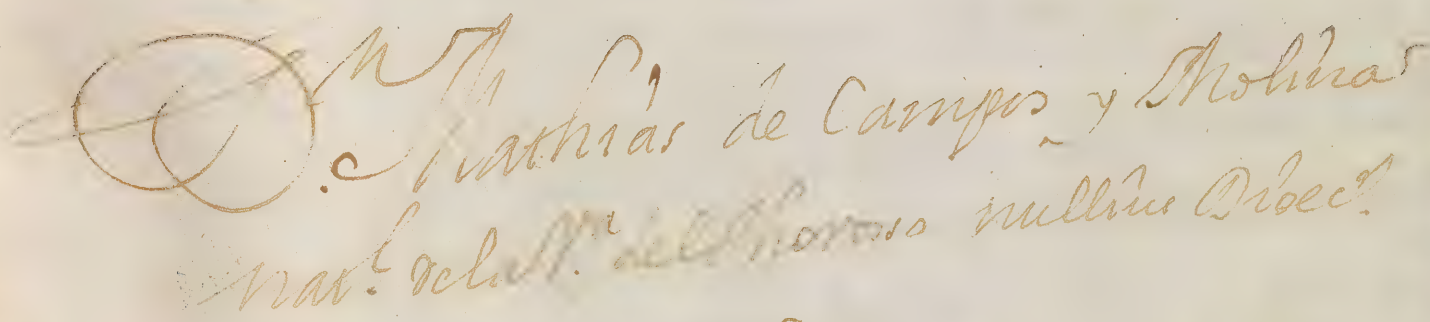 Dn. Mathias de Campos y Molina
natl. de la Va. del Moroso nullius Dioecs.